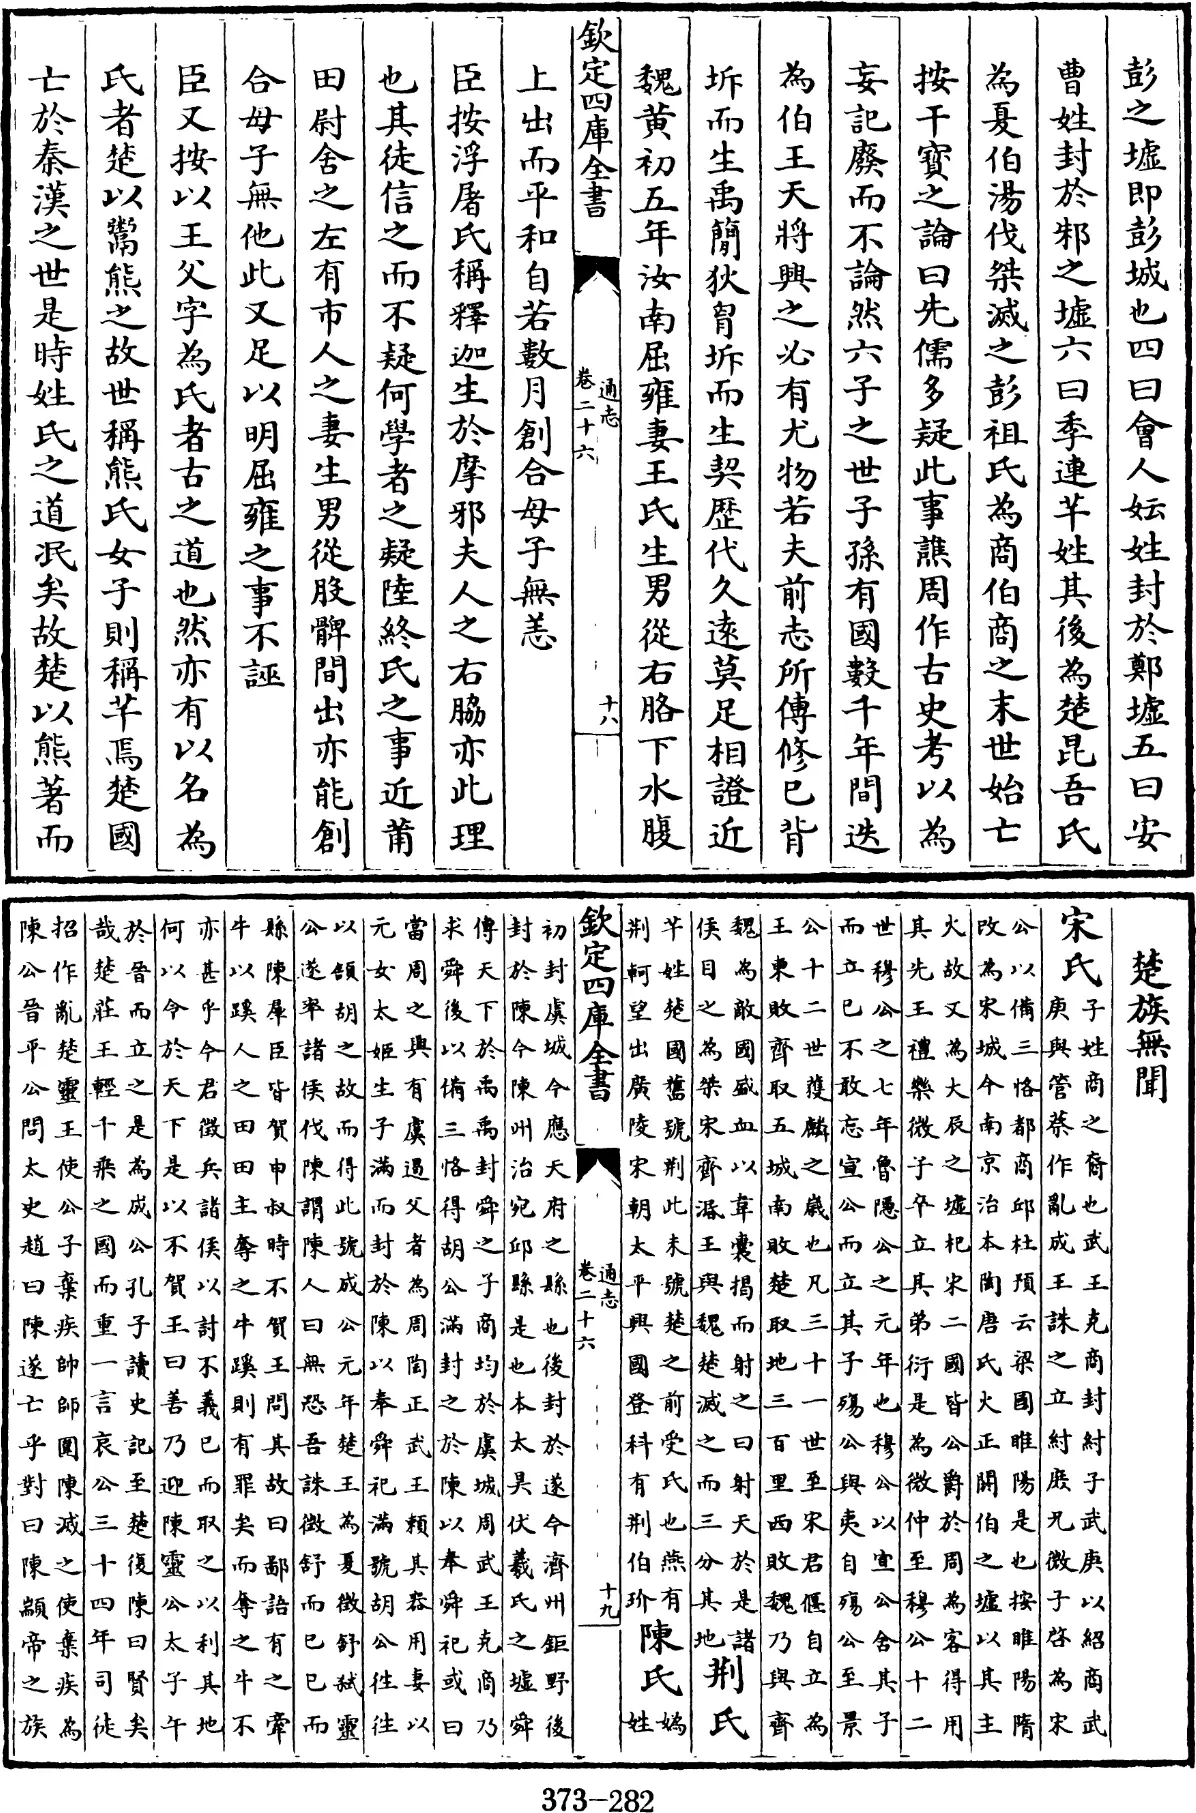 彭之墟即彭城也四曰會人妘姓封於鄭墟五曰安
曹姓封於邾之墟六曰季連芊姓其後為楚昆吾氏
為夏伯湯伐桀滅之彭祖氏為商伯商之末世始亡
按干寶之論曰先儒多疑此事譙周作古史考以為
妄記廢而不論然六子之世子孫有國數千年間迭
為伯王天將興之必有尤物若夫前志所傳修已背
坼而生禹簡狄胷坼而生契歷代久遠莫足相證近
魏黃初五年汝南屈雍妻王氏生男從右胳下水腹
欽定四庫全書
通志
卷二十六
十八
上出而平和自若數月創合母子無恙
臣按浮屠氏稱釋迦生於摩邪夫人之右脇亦此理
也其徒信之而不疑何學者之疑陸終氏之事近莆
田尉舍之左有市人之妻生男從股髀間出亦能創
合母子無他此又足以明屈雍之事不誣
臣又按以王父字為氏者古之道也然亦有以名為
氏者楚以鬻熊之故世稱熊氏女子則稱芊焉楚國
亡於秦漢之世是時姓氏之道泯矣故楚以熊著而
楚族無聞
宋氏
子姓商之裔也武王克商封紂子武庚以紹商武
庚與管蔡作亂成王誅之立紂庶兄微子啓為宋
公以備三恪都商邱杜預云梁國睢陽是也按睢陽隋
改為宋城今南京治本陶唐氏火正閼伯之墟以其主
火故又為大辰之墟杞宋二國皆公爵於周為客得用
其先王禮樂微子卒立其弟衍是為微仲至穆公十二
世穆公之七年魯隱公之元年也穆公以宣公舍其子
而立已不敢忘宣公而立其子殤公與夷自殤公至景
公十二世獲麟之歲也凡三十一世至宋君偃自立為
王東敗齊取五城南敗楚取地三百里西敗魏乃與齊
魏為敵國盛血以韋囊揭而射之曰射天於是諸
侯目之為桀宋齊湣王與魏楚滅之而三分其地
荆氏
芊姓楚國舊號荆此未號楚之前受氏也燕有
荆軻望出廣陵宋朝太平興國登科有荆伯玠
陳氏
媯
姓
欽定四庫全書
通志
卷二十六
十九
初封虞城今應天府之縣也後封於遂今濟州鉅野後
封於陳今陳州治宛邱縣是也本太昊伏羲氏之墟舜
傳天下於禹禹封舜之子商均於虞城周武王克商乃
求舜後以備三恪得胡公滿封之於陳以奉舜祀或曰
當周之興有虞遏父者為周陶正武王賴其器用妻以
元女太姬生子滿而封於陳以奉舜祀滿號胡公往往
以頷胡之故而得此號成公元年楚王為夏徵舒弒靈
公遂率諸侯伐陳謂陳人曰無恐吾誅徵舒而已已而
縣陳羣臣皆賀申叔時不賀王問其故曰鄙語有之牽
牛以蹊人之田田主奪之牛蹊則有罪矣而奪之牛不
亦甚乎今君徵兵諸侯以討不義已而取之以利其地
何以令於天下是以不賀王曰善乃迎陳靈公太子午
於晉而立之是為成公孔子讀史記至楚復陳曰賢矣
哉楚莊王輕千乘之國而重一言哀公三十四年司徒
招作亂楚靈王使公子棄疾帥師圍陳滅之使棄疾為
陳公晉平公問太史趙曰陳遂亡乎對曰陳顓帝之族
373-282